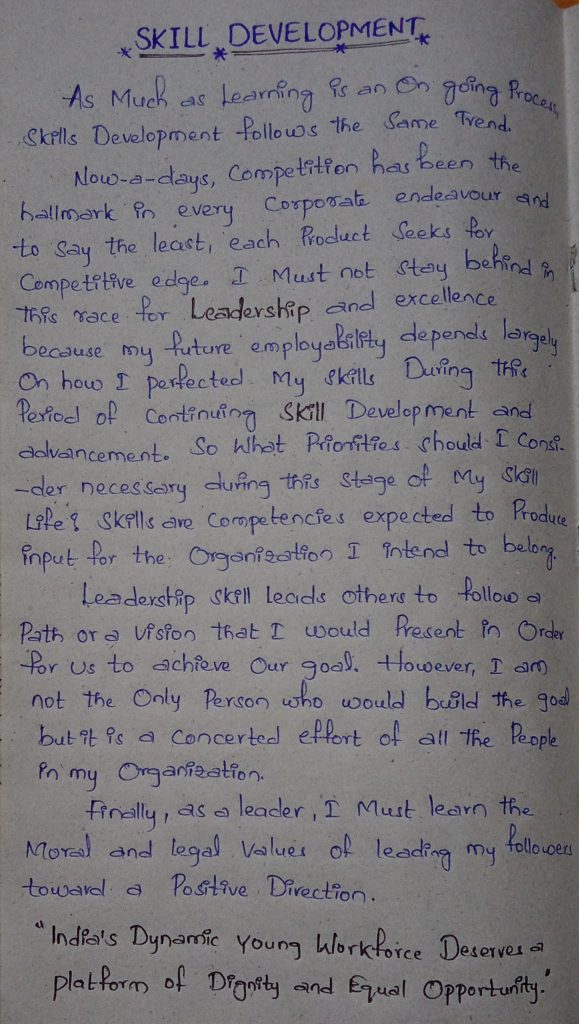 * SKILL * DEVELOPMENT *
As Much as Learning is an On going Process,
Skills Development follows the Same Trend.
Now-a-days, Competition has been the
hallmark in every Corporate endeavour and
to say the least, each Product Seeks for
Competitive edge. I Must not stay behind in
This race for Leadership and excellence
because my future employability depends largely
On how I perfected My skills During this
Period of Continuing Skill Development and
advancement. So What Priorities should I Consi-
-der necessary during this stage of My Skill
Life? Skills are Competencies expected to Produce
input for the Organization I intend to belong.
Leadership skill leads others to follow a
Path or a Vision that I would Present in Order
for us to achieve Our goal. However, I am
not the Only Person who would build the goal
but it is a Concerted effort of all the People
in my Organization.
Finally, as a leader, I Must learn the
Moral and legal Values of leading my followers
toward a Positive Direction.
"India's Dynamic Young Workforce Deserves a
platform of Dignity and Equal Opportunity."